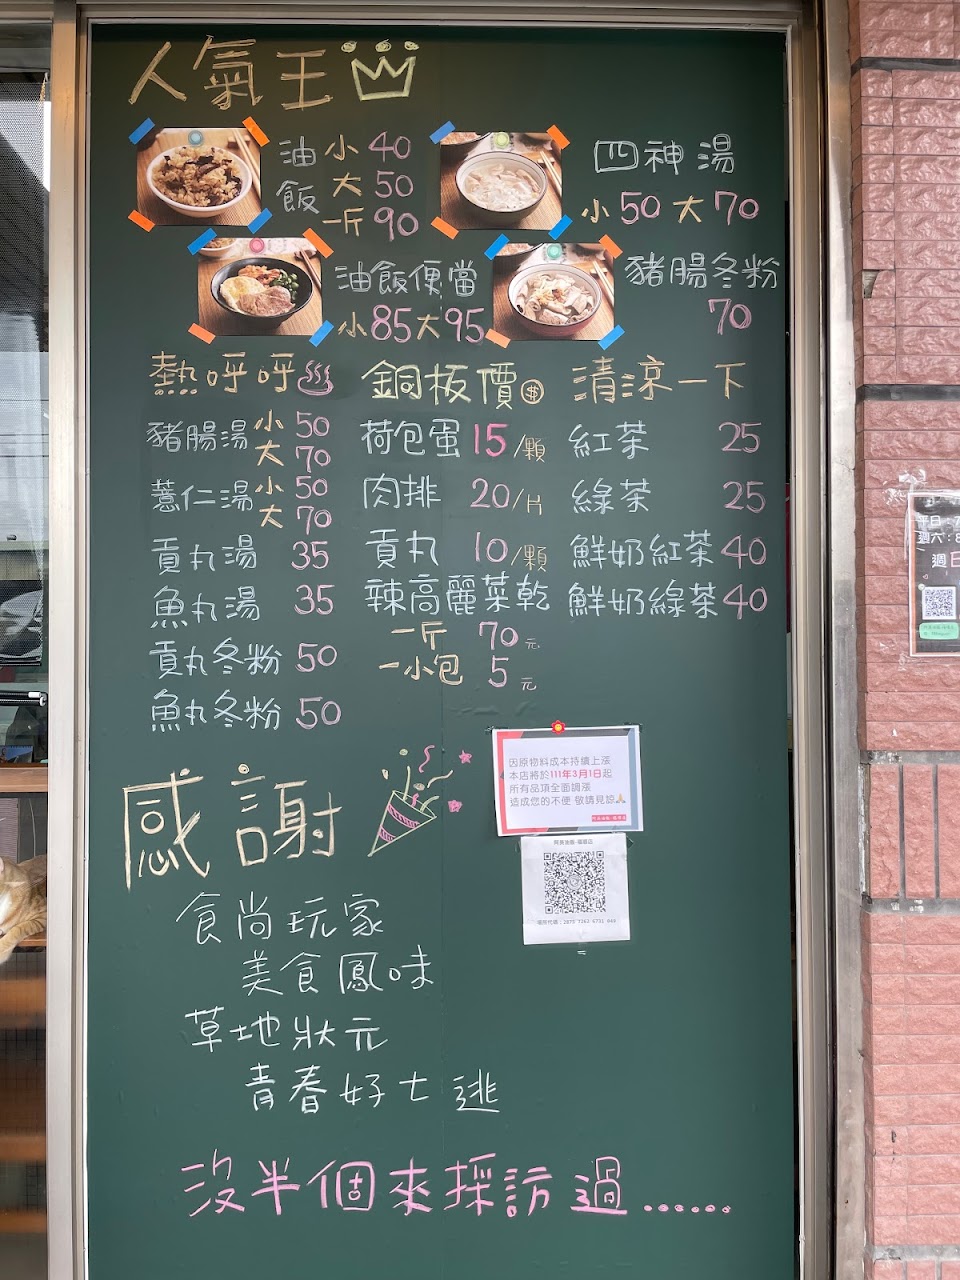 人氣王
油飯 小 40
大 50
一斤 90
四神湯
小 50 大 70
油飯便當
小 85 大 95
豬腸冬粉
70
熱呼呼
豬腸湯 小 50
大 70
薏仁湯 小 50
大 70
貢丸湯 35
魚丸湯 35
貢丸冬粉 50
魚丸冬粉 50
銅板價 $
荷包蛋 15/顆
肉排 20/片
貢丸 10/顆
辣高麗菜乾
一斤 70元
一小包 5元
清涼一下
紅茶 25
綠茶 25
鮮奶紅茶 40
鮮奶綠茶 40
因原物料成本持續上漲
本店將於111年3月1日起
所有品項全面調漲
造成您的不便 敬請見諒🙏
感謝
食尚玩家
美食鳳味
草地狀元
青春好七逃
沒半個來採訪過......
平日:7
週六:8
週日